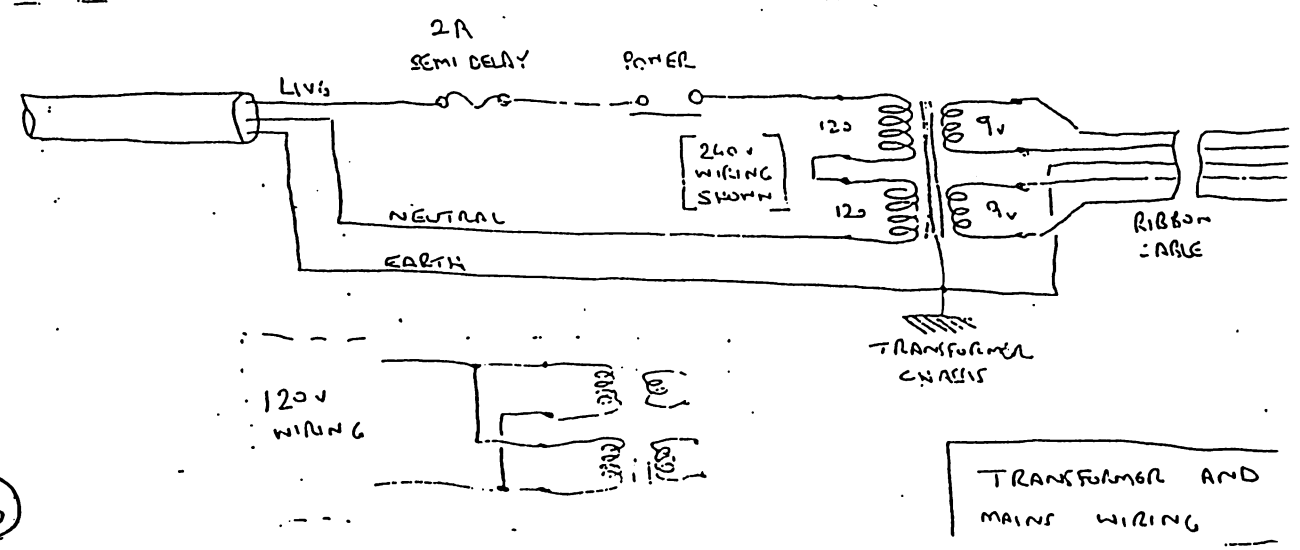 2A
SEMI DELAY
POWER
LIVE
120
9v
240v
WIRING
SHOWN
120
9v
NEUTRAL
RIBBON
CABLE
EARTH
TRANSFORMER
CHASSIS
120v
WIRING
TRANSFORMER AND
MAINS WIRING